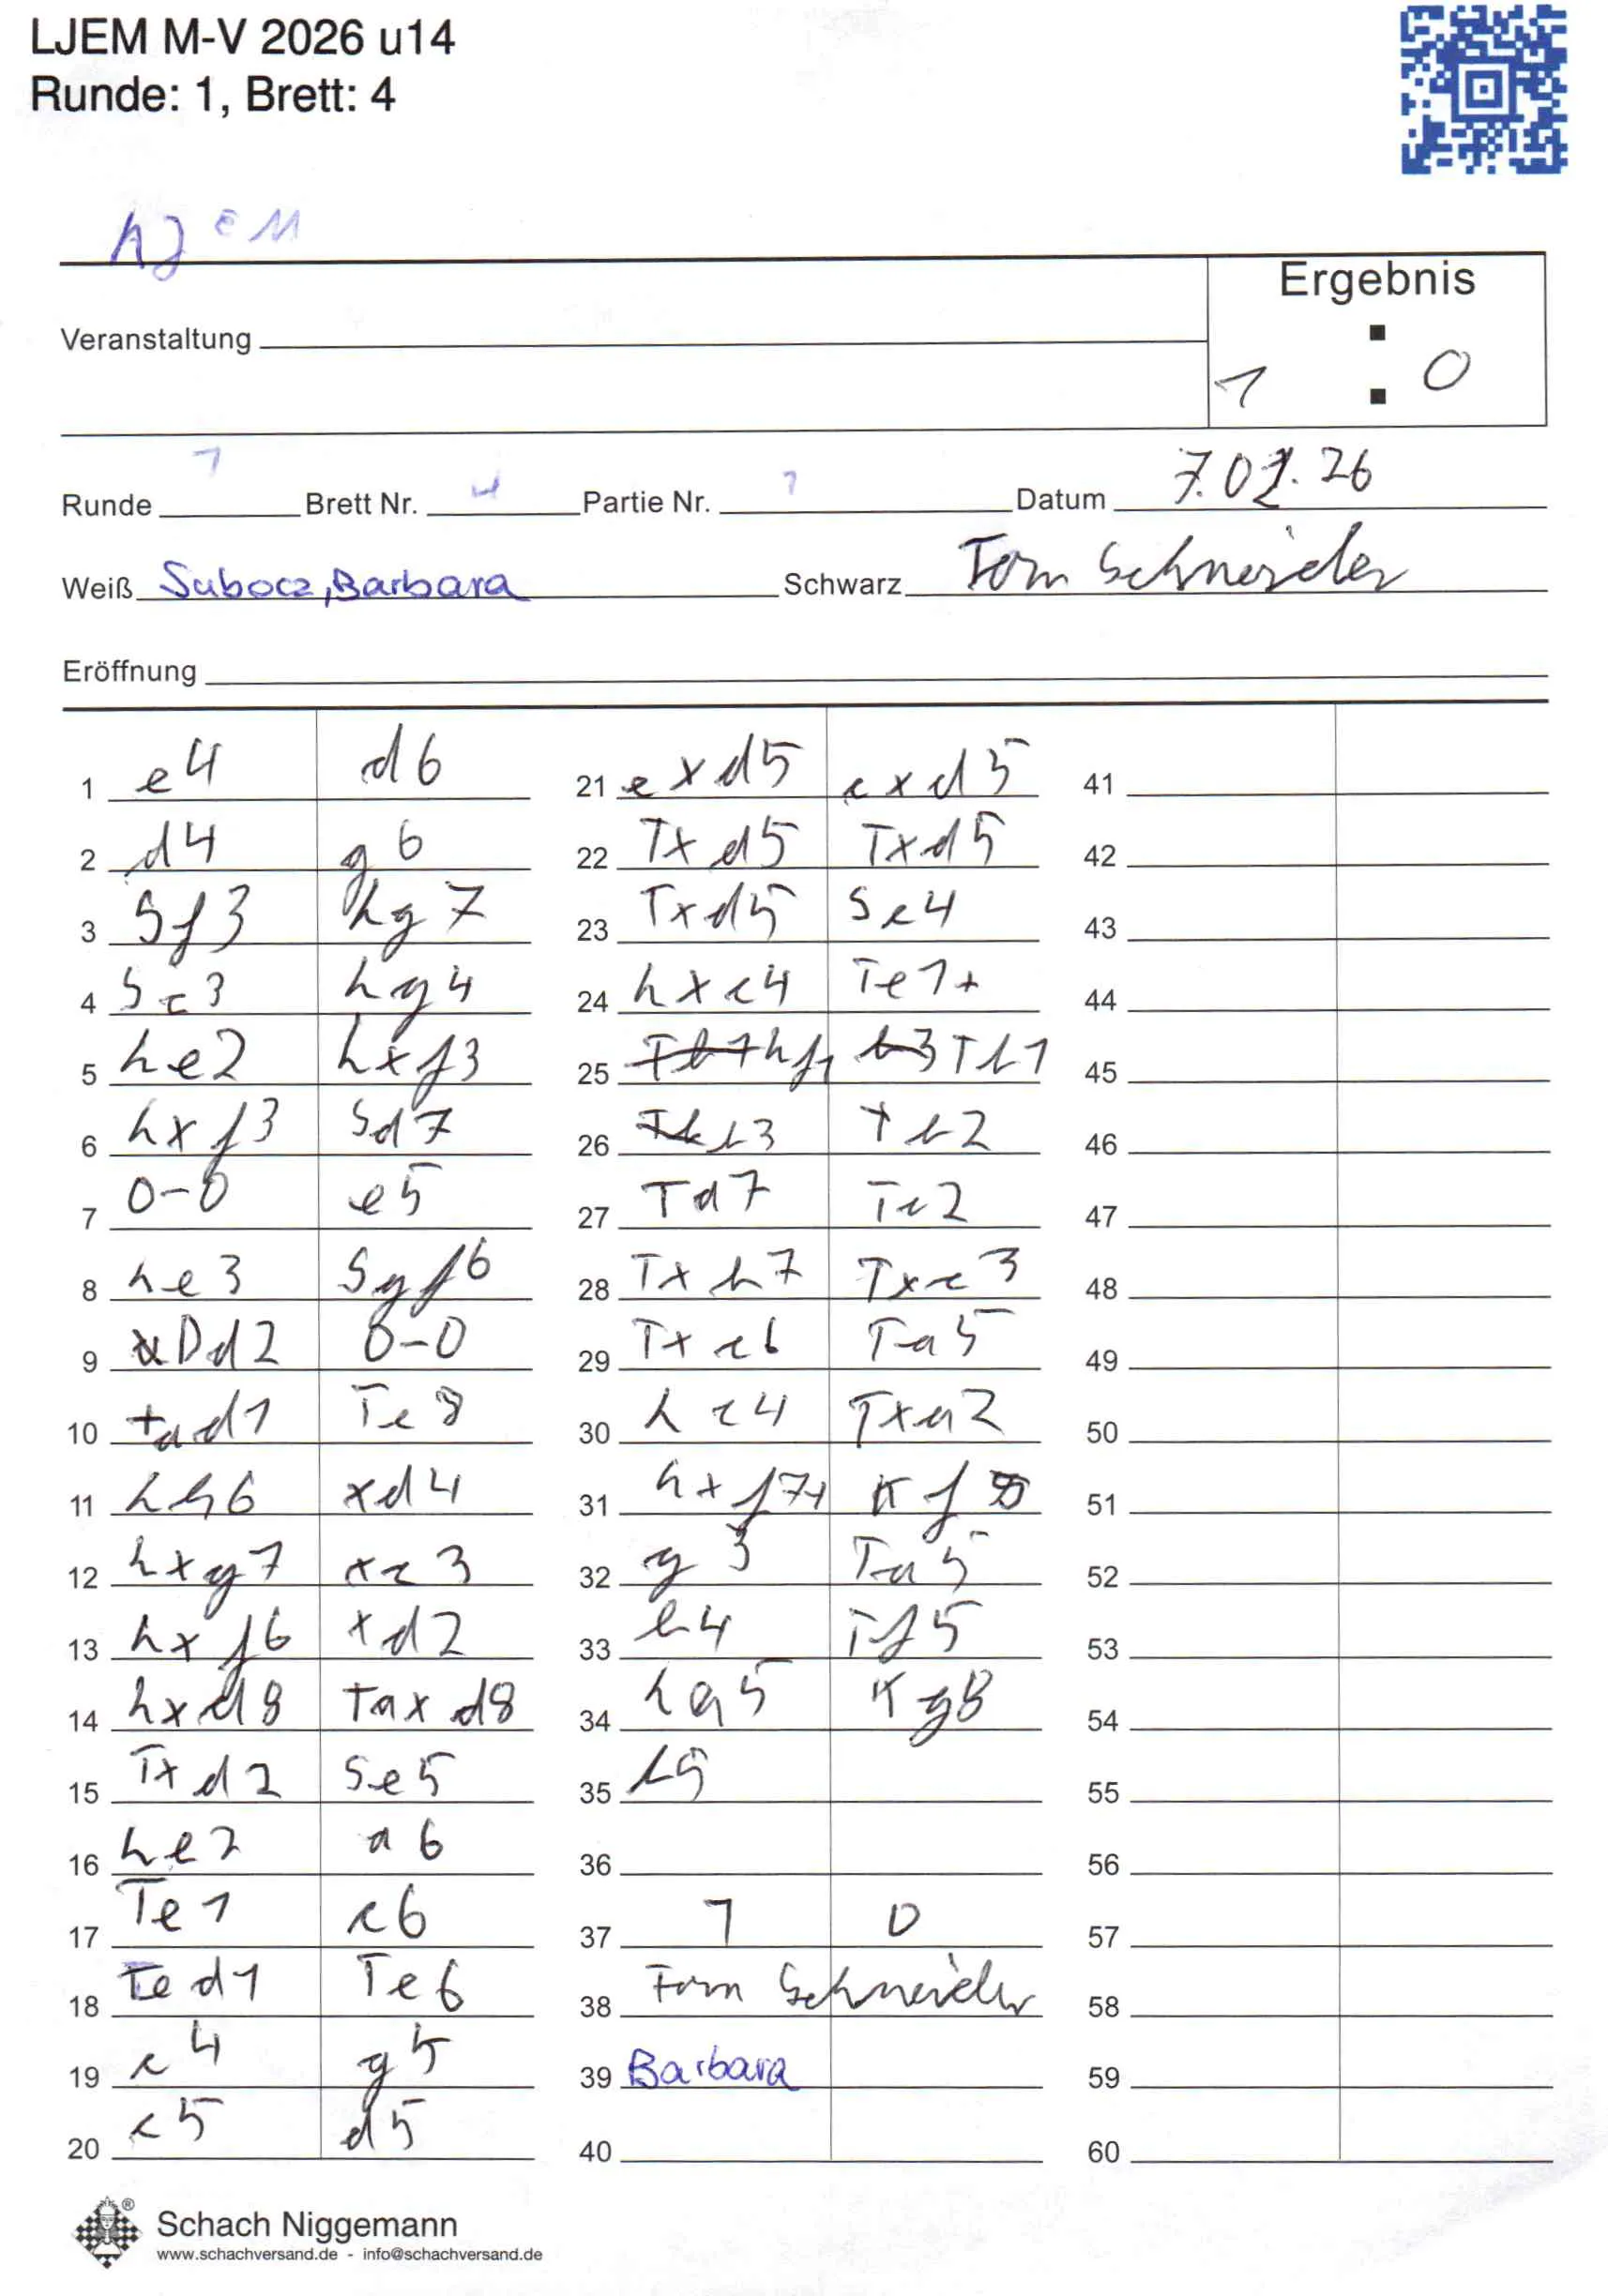 LJEM M-V 2026 u14
Runde: 1, Brett: 4
LJEM
Ergebnis
Veranstaltung
1 : 0
Runde 1 Brett Nr. 4 Partie Nr. 1 Datum 7.02.26
Weiß Subocz, Barbara Schwarz Tom Schneider
Eröffnung
1 e4 d6
2 d4 g6
3 Sf3 Lg7
4 Sc3 Lg4
5 Le2 Lxf3
6 Lxf3 Sd7
7 0-0 e5
8 Le3 Sgf6
9 Dd2 0-0
10 Tad1 Te8
11 Lh6 xd4
12 Lxg7 xc3
13 Lxf6 xd2
14 Lxd8 Taxd8
15 Txd2 Se5
16 Le2 a6
17 Te1 c6
18 Ted1 Te6
19 c4 g5
20 c5 d5
21 exd5 cxd5
22 Txd5 Txd5
23 Txd5 Sc4
24 Lxc4 Te1+
25 Lf1 Tb1
26 b3 Tb2
27 Td7 Tc2
28 Txb7 Txc3
29 Txc6 Ta5
30 Lc4 Txa2
31 Lxf7+ Kf8
32 g3 Ta5
33 b4 Tf5
34 La5 Kg8
35
36
37 1 0
38 Tom Schneider
39 Barbara
40
41
42
43
44
45
46
47
48
49
50
51
52
53
54
55
56
57
58
59
60
Schach Niggemann
www.schachversand.de - info@schachversand.de